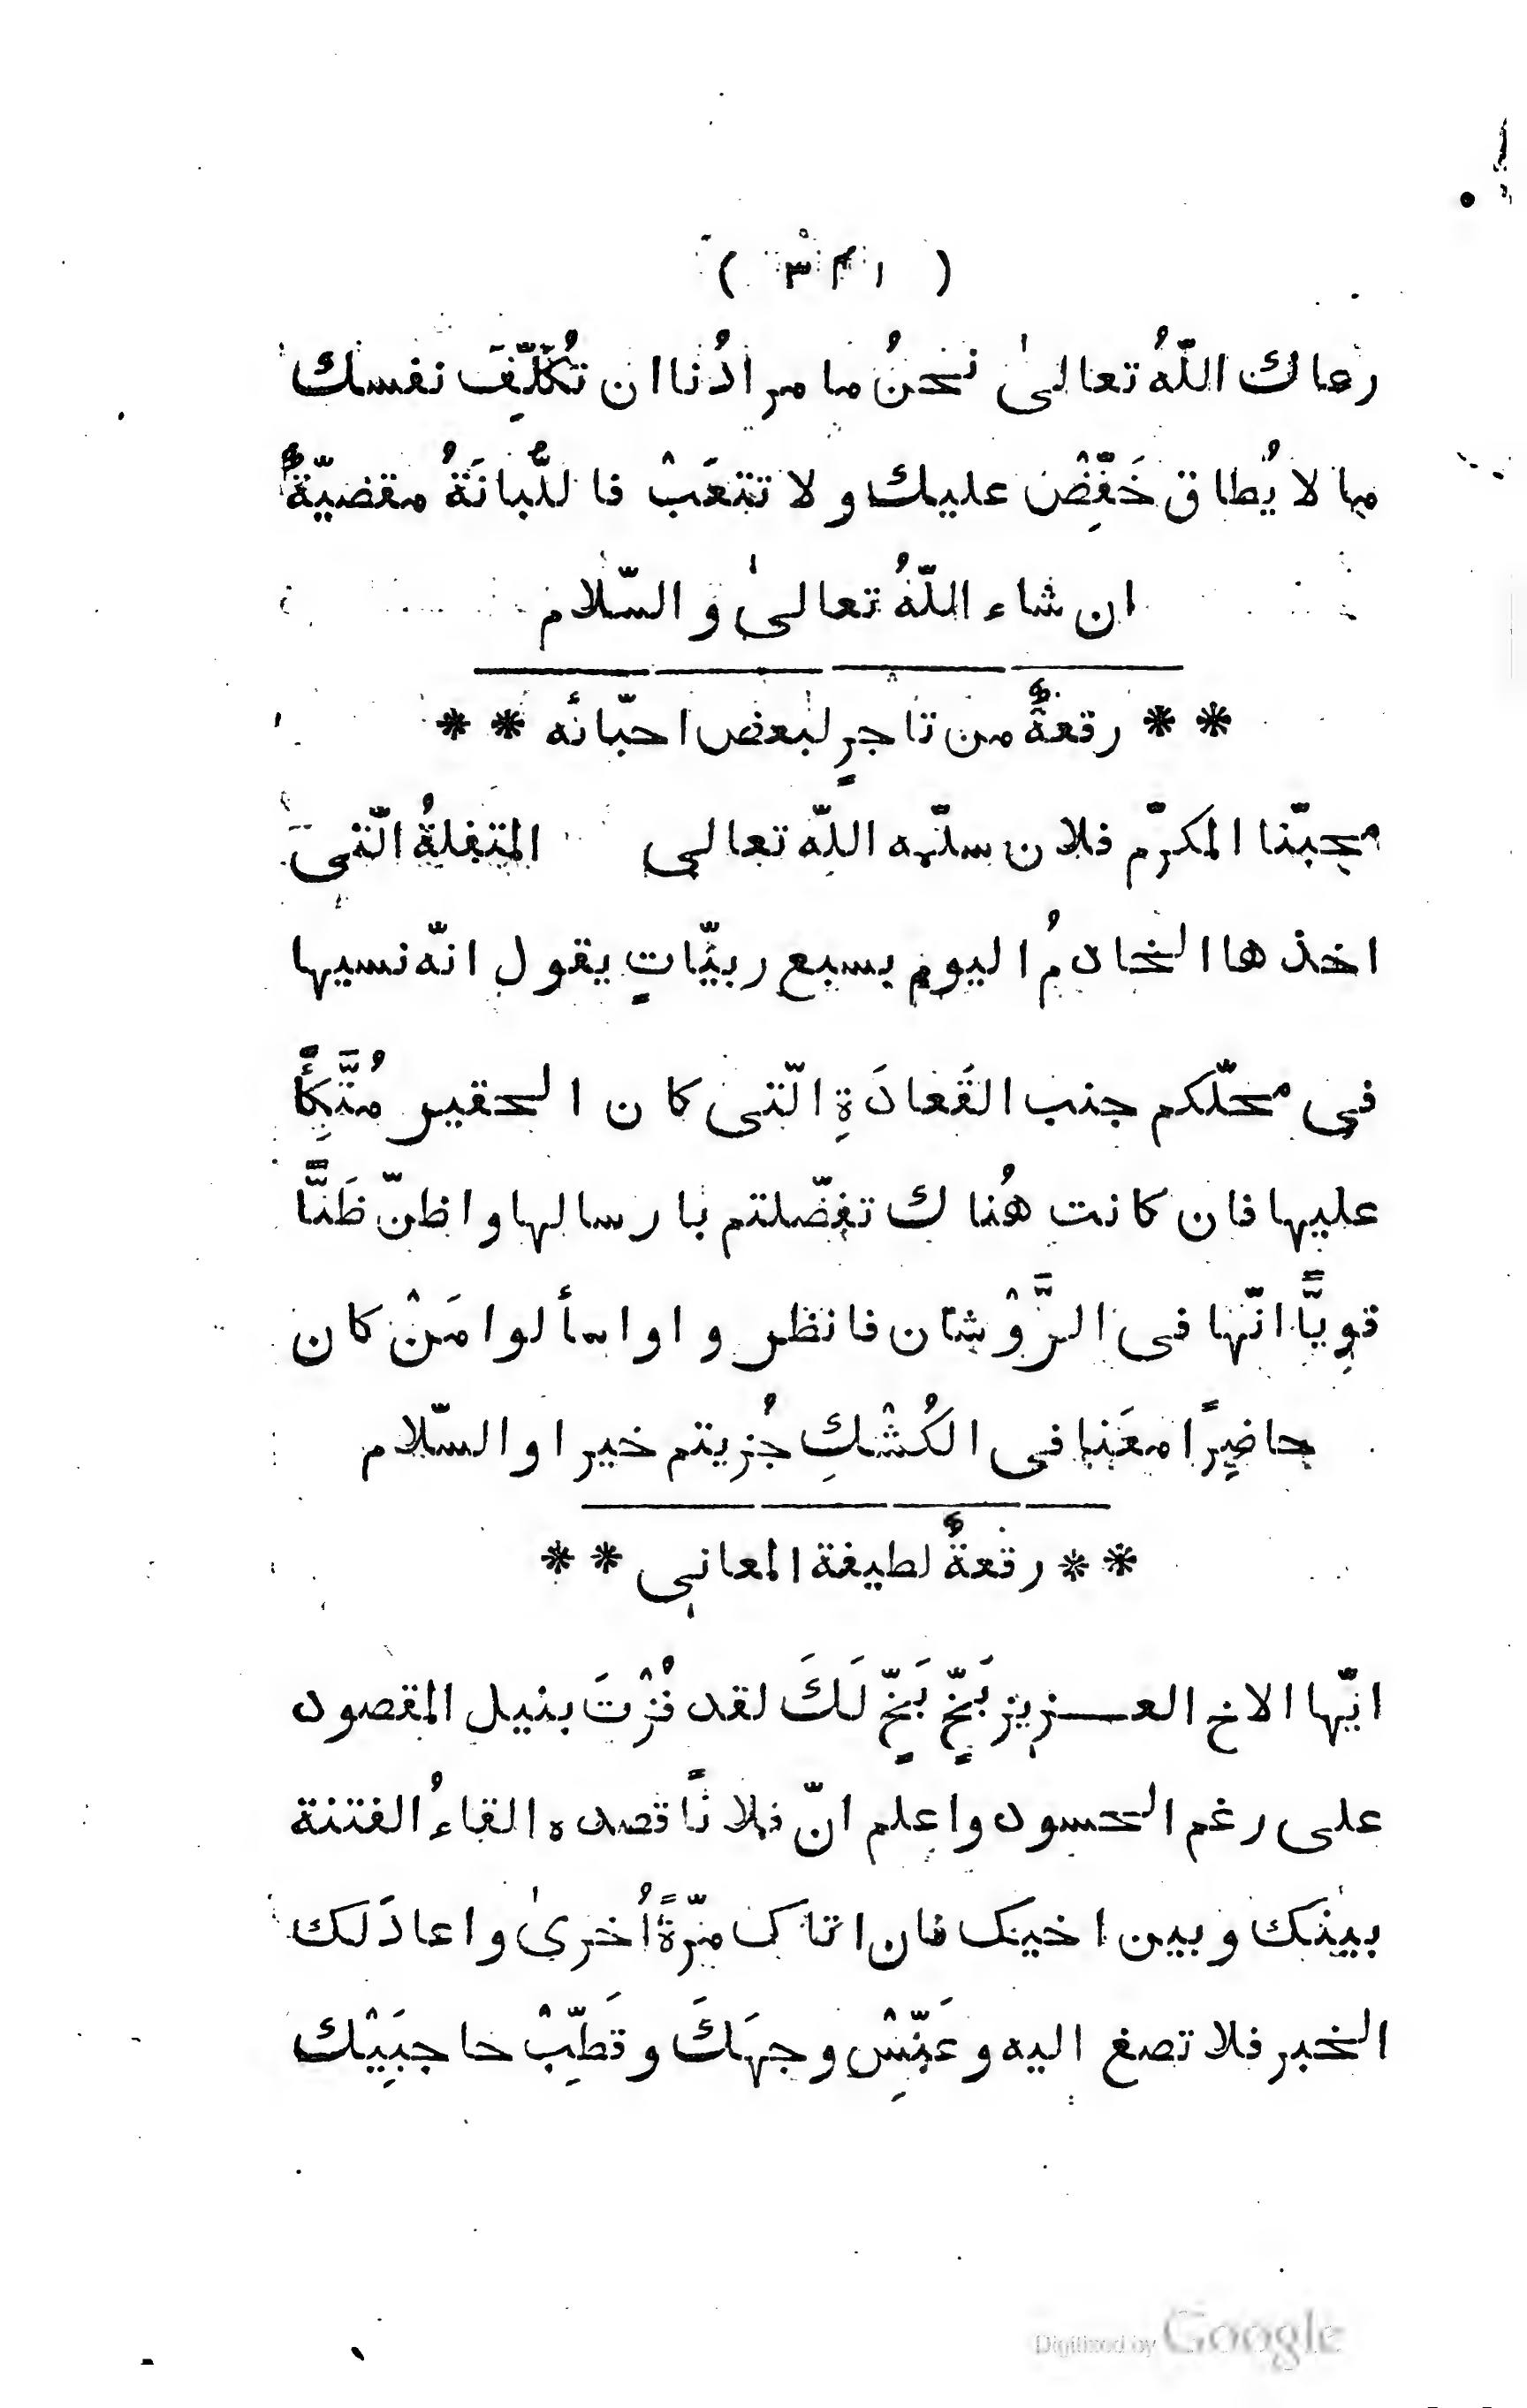 رعاك اللّهُ تعالىٰ نحنُ ما مرادُنا ان تُكَلِّفَ نفسك
مالا يُطاق خَفِّضْ عليك ولا تتعَبْ فاللُّبانَةُ مقضيّةٌ
ان شاء اللّهُ تعالىٰ والسّلام
** رقعةٌ من تاجرٍ لبعض احبّائه **
محبّنا المكرّم فلان سلّمه اللّه تعالى المتفلةُ الّتى
اخذها الخادمُ اليوم بسبع ربيّاتٍ يقول انّه نسيها
فى محلّكم جنب القَعادَةِ الّتى كان الحقير مُتَّكِأً
عليها فان كانت هُناك تفضّلتم بارسالها واظنّ ظَنًّا
قوِيًّا انّها فى الرَّوْشان فانظروا واسألوا مَنْ كان
حاضِرًا معَنا فى الكُشْكِ جُزيتم خيرا والسّلام
** رقعةٌ لطيفة المعانى **
ايّها الاخ العزيز بَخٍّ بَخٍّ لَكَ لقد فُزْتَ بنيل المقصود
على رغم الحسود واعلم انّ فلانًا قصده القاءُ الفتنة
بينك وبين اخيك فان اتاك مرّةً اُخرىٰ واعادَ لك
الخبر فلا تصغ اليه وعَبِّسْ وجهَكَ وقَطِّبْ حاجبَيْك
Digitized by Google